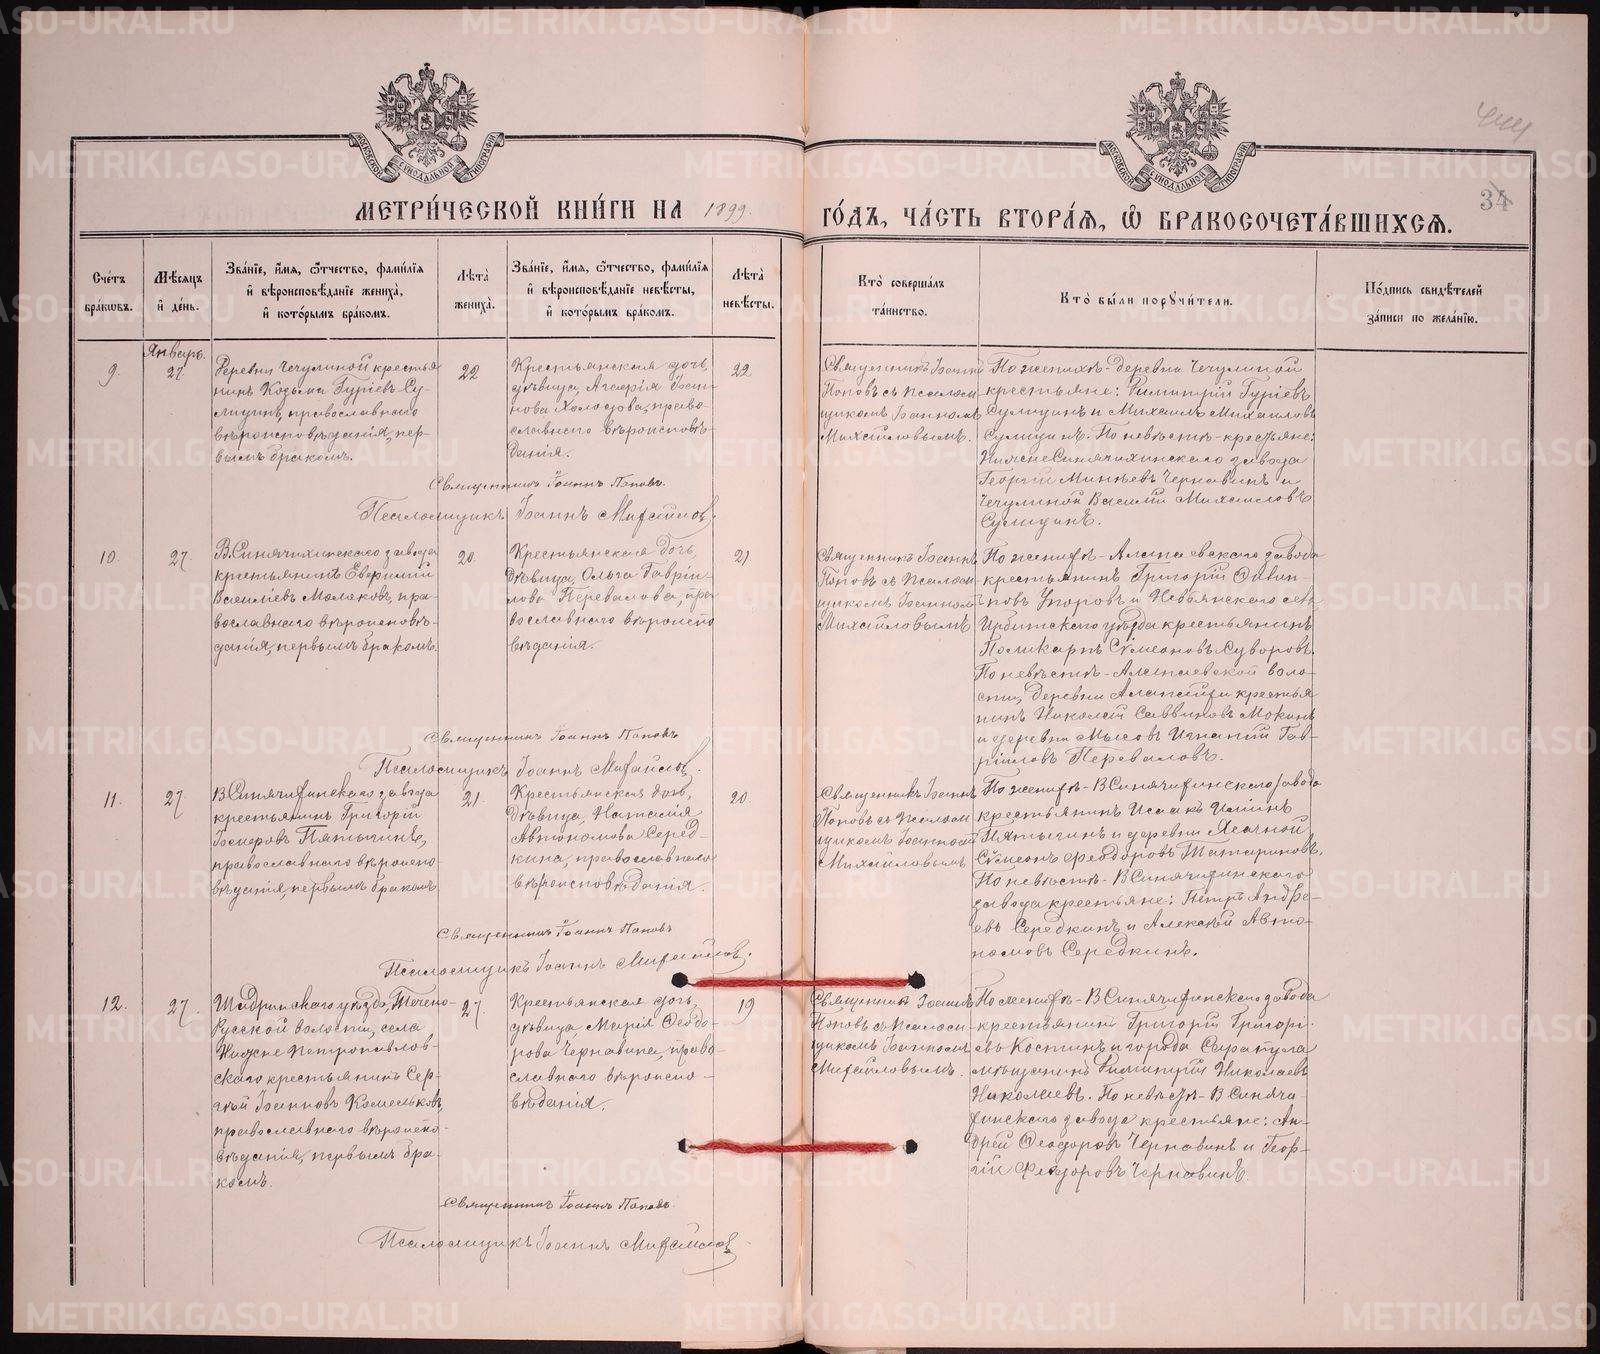 МЕТРИ́ЧЕСКОЙ КНИ́ГИ НА 1899.
ГО́ДЪ, ЧА́СТЬ ВТОРА́Я, Ѡ БРАКОСОЧЕТА́ВШИХСЯ.
34
Сче́тъ бра́кѡвъ.
Мѣ́сяцъ и де́нь.
Зва́нїе, и́мя, ѻ́тчество, фами́лїя
и вѣроисповѣ́данїе жениха̀,
и кото́рымъ бра́комъ.
Лѣта̀ жениха̀.
Зва́нїе, и́мя, ѻ́тчество, фами́лїя
и вѣроисповѣ́данїе невѣ́сты,
и кото́рымъ бра́комъ.
Лѣта̀ невѣ́сты.
Кто̀ соверша́лъ
та́инство.
Кто̀ бы́ли порꙋчи́тели.
По́дпись свидѣ́телей
за́писи по жела́нїю.
Январь.
9.
27.
Деревни Чечулиной крестья-
нинъ Козьма Гуріевъ Су-
лицинъ, православнаго
вѣроисповѣданія, пер-
вымъ бракомъ.
22
Крестьянская дочь,
дѣвица,
нова Холодова, право-
славнаго вѣроисповѣ-
данія.
22
Священникъ Іоаннъ
Поповъ съ псалом-
щикомъ Іоанномъ
Михайловымъ.
По женихѣ - Деревни Чечулиной
крестьяне: Димитрій Гуріевъ
Сулицинъ и Михаилъ Михаиловъ
Сулицинъ. По невѣстѣ - крестьяне:
Нижнесинячихинскаго завода
Георгій Минѣевъ Чернавинъ и
Чечулиной Василій Михаиловъ
Сулицинъ.
Священникъ Іоаннъ Поповъ.
Псаломщикъ Іоаннъ Михайловъ.
10.
27.
В. Синячихинскаго завода
крестьянинъ Евфимій
Василіевъ Малаховъ, пра-
вославнаго вѣроисповѣ-
данія, первымъ бракомъ.
20.
Крестьянская дочь,
дѣвица, Ольга Гаврі-
лова Перевалова, пра-
вославнаго вѣроиспо-
вѣданія.
21.
Священникъ Іоаннъ
Поповъ съ псалом-
щикомъ Іоанномъ
Михайловымъ
По женихѣ - Алапаевскаго завода
крестьянинъ Григорій Филип-
повъ Упоровъ и Невьянскаго села
Ирбитскаго уѣзда крестьянинъ
Поликарпъ Сѵмеоновъ Суворовъ.
По невѣстѣ - Алапаевской воло-
сти, деревни Алапаихи крестья-
нинъ Николай Саввиновъ Мокинъ
и деревни Мысовъ Игнатій Гав-
ріиловъ Переваловъ.
Священникъ Іоаннъ Поповъ
Псаломщикъ Іоаннъ Михайловъ.
11.
27
В Синячихинскаго завода
крестьянинъ Григорій
Пятыгинъ,
православнаго вѣроиспо-
вѣданія, первымъ бракомъ.
21.
Крестьянская дочь,
дѣвица, Наталія
Автономова Серед-
кина, православнаго
вѣроисповѣданія.
20.
Священникъ Іоаннъ
Поповъ съ псалом-
щикомъ Іоанномъ
Михайловымъ
По женихѣ - В Синячихинскаго завода
крестьянинъ Исаакъ Илiинъ
Пятыгинъ и деревни Ясачной
Сѵмеонъ Феодоровъ Татариновъ.
По невѣстѣ - В Синячихинскаго
завода крестьяне: Петръ Андре-
евъ Середкинъ и Алексѣй Авто-
номовъ Середкинъ.
Священникъ Іоаннъ Поповъ
Псаломщикъ Іоаннъ Михайловъ.
12.
27.
Шадринскаго уѣзда, Течено-
Русской волости, села
Нижне Петропавлов-
скаго крестьянинъ Сер-
гѣй Іоанновъ Камельковъ,
православнаго вѣроиспо-
вѣданія, первымъ бра-
комъ.
27.
Крестьянская дочь,
дѣвица Марія Ѳеодо-
рова Чернавина, право-
славнаго вѣроиспо-
вѣданія.
19
Священникъ Іоаннъ
Поповъ съ псалом-
щикомъ Іоанномъ
Михайловымъ.
По женихѣ - В Синячихинскаго завода
крестьянинъ Григорій Григорі-
евъ Костинъ и города Сарапула
мѣщанинъ Димитрій Николаевъ
Николаевъ. По невѣстѣ - В Синячи-
хинскаго завода крестьяне: Ан-
дрей Ѳеодоровъ Чернавинъ и Геор-
гій Феодоровъ Чернавинъ.
Священникъ Іоаннъ Поповъ
Псаломщикъ Іоаннъ Михайловъ
METRIKI.GASO-URAL.RU